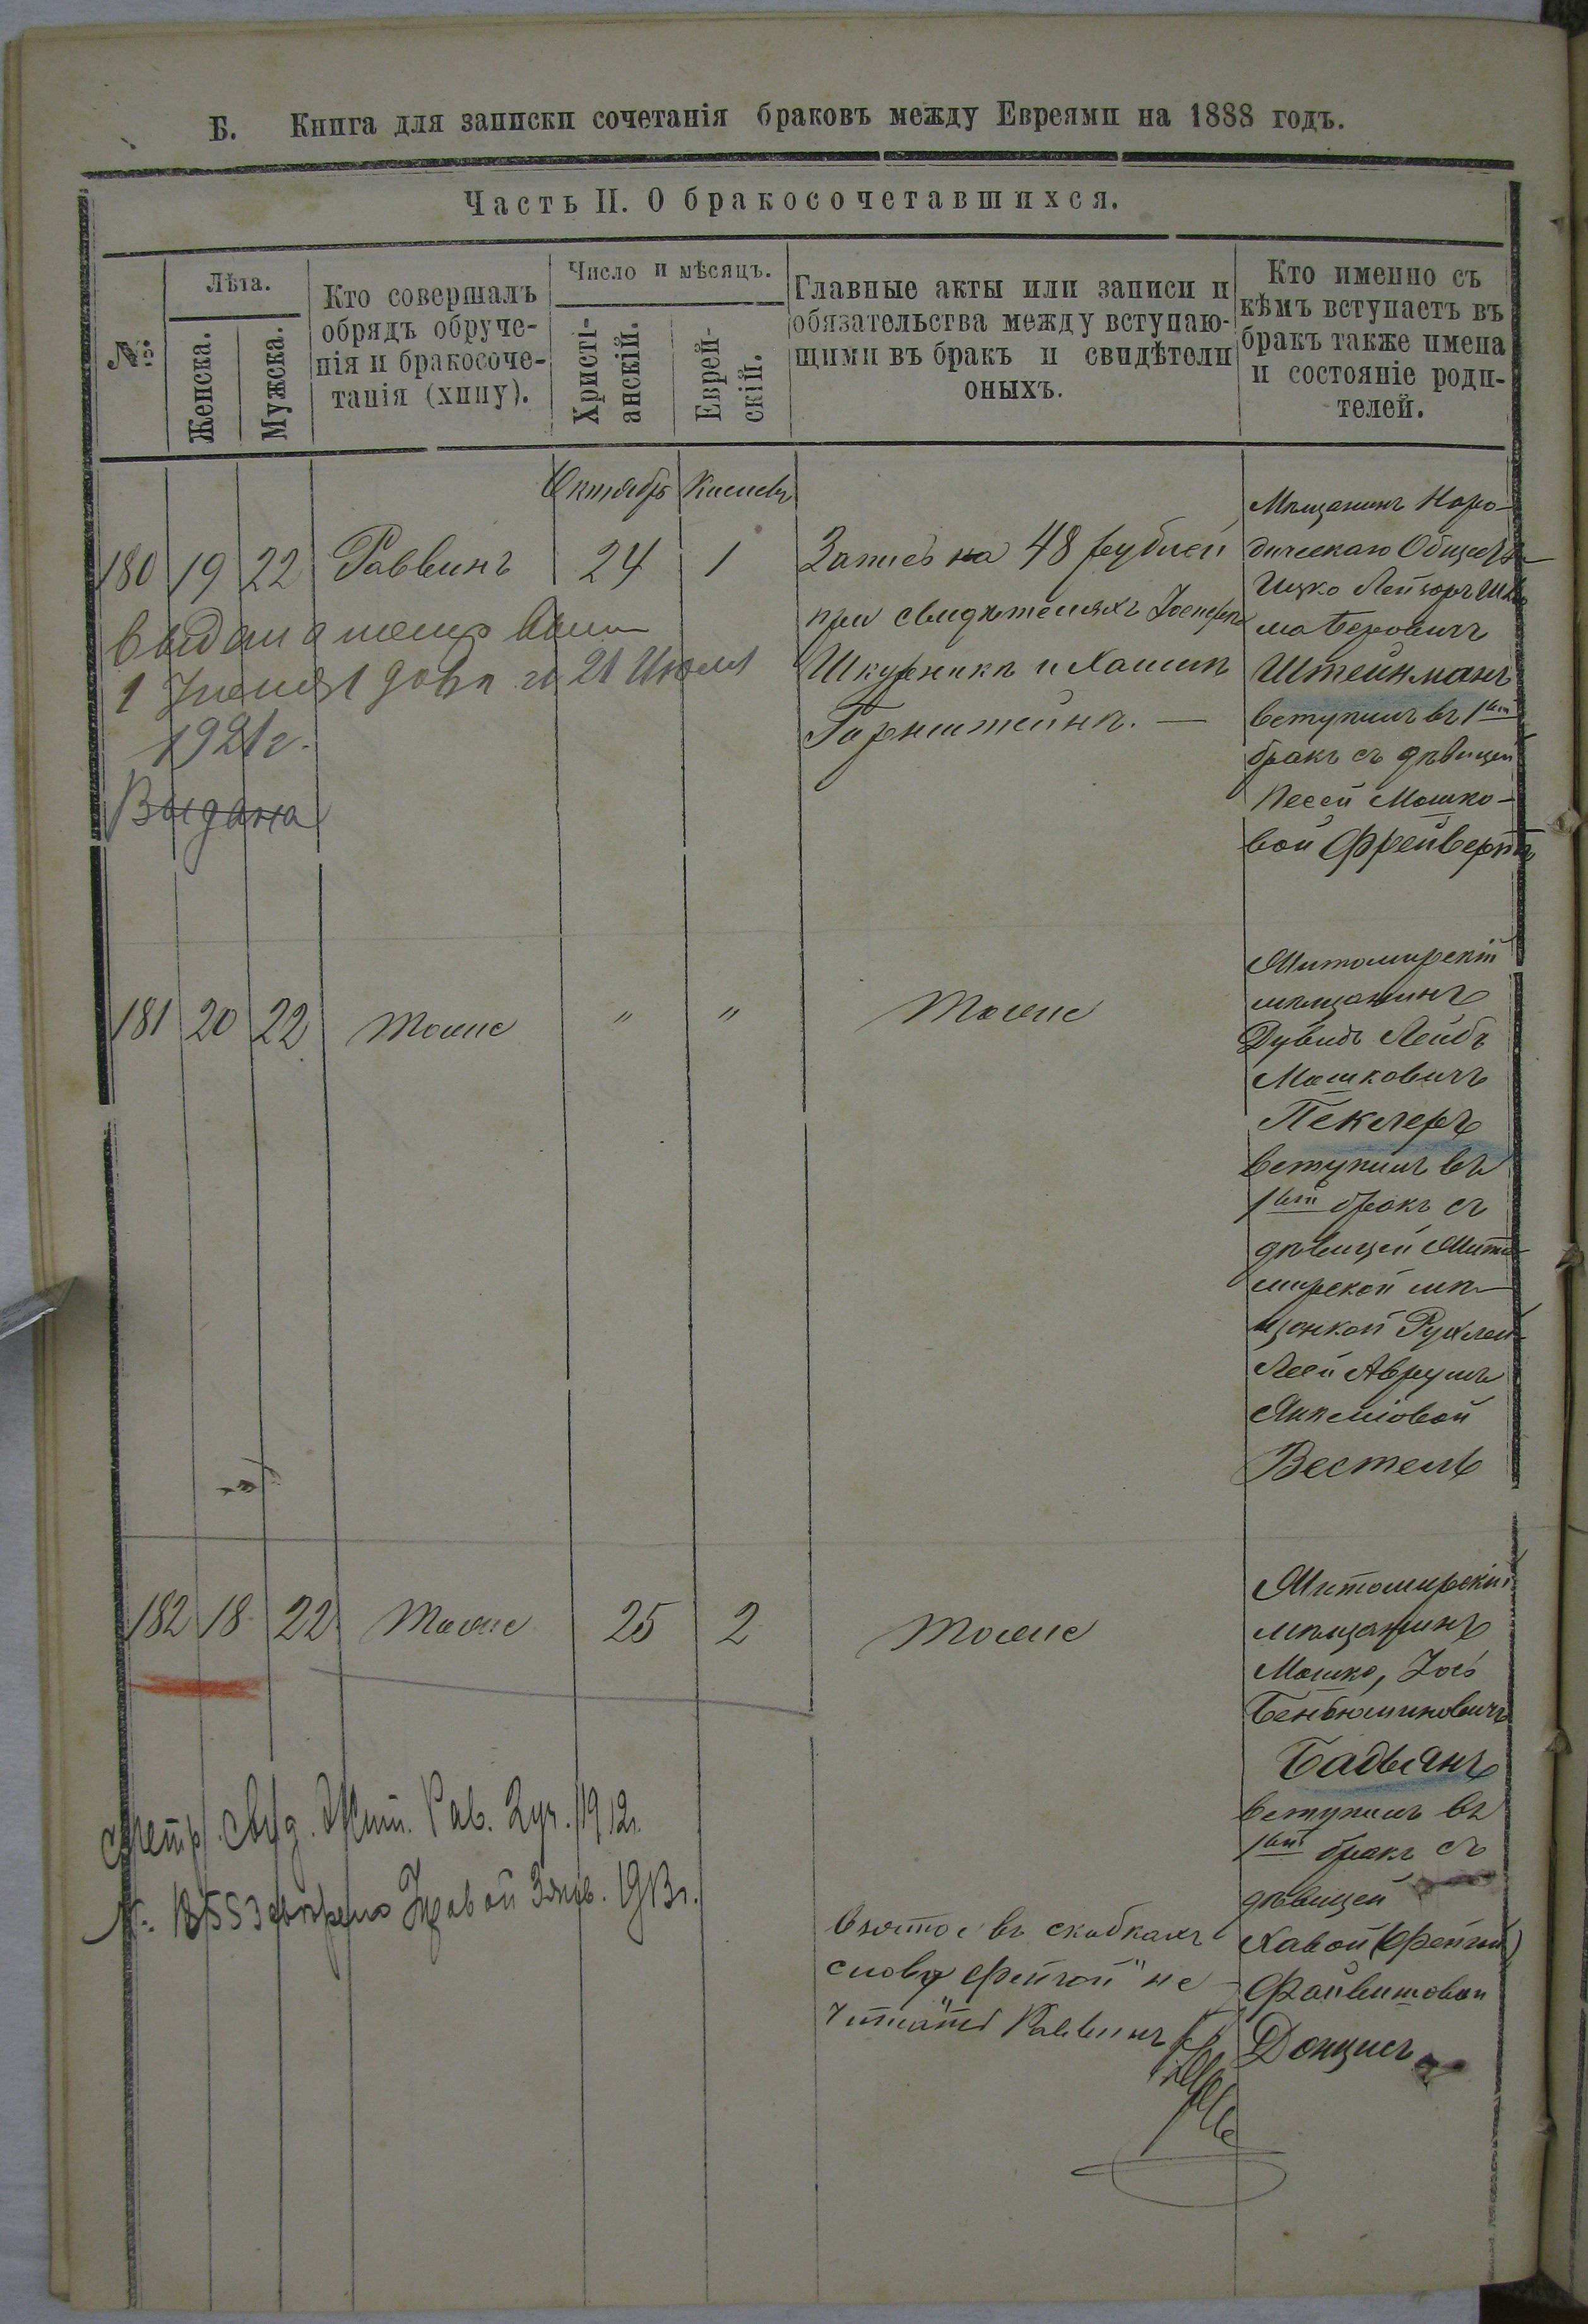 Б. Книга для записки сочетанія браковъ между Евреями на 1888 годъ.
Часть II. О бракосочетавшихся.
№
Лѣта.
Женска.
Мужска.
Кто совершалъ
обрядъ обруче-
нія и бракосоче-
танія (хупу).
Число и мѣсяцъ.
Христі-
анскій.
Еврей-
скій.
Главные акты или записи и
обязательства между вступаю-
щими въ бракъ и свидѣтели
оныхъ.
Кто именно съ
кѣмъ вступаетъ въ
бракъ также имена
и состояніе роди-
телей.
Октябрь Кислевъ
180 19 22 Раввинъ 24 1
Запись на 48 рублей
при свидѣтеляхъ Іосифѣ
Шкурникѣ и Хаимѣ
Горнштейнѣ. —
Мѣщанинъ Наро-
дическаго Общества
Ицко Лейзоръ
Беровичъ
Штейнманъ
вступилъ въ 1ый
бракъ съ дѣвицей
Песей Мошко-
вой Фрейвертъ
выдана
21 Июля
1921 г.
Выдана
181 20 22 тоже " " тоже
Житомирскій
мѣщанинъ
Дувидъ Лейбъ
Мошковичъ
Пеклеръ
вступилъ въ
1ый бракъ съ
дѣвицей Жито-
мирской мѣ-
щанкой Рухлей
Леей Аврумъ
Янкелiовой
Вестель
182 18 22 тоже 25 2 тоже
Житомирскій
мѣщанинъ
Мошко, Іось
Беньюминовичъ
Бадьянъ
вступилъ въ
1ый бракъ съ
дѣвицей
Хавой (Фейгой)
Файвишовой
Донцисъ
свид. Жит. Рав. 2 уч. 1912 г.
№ 1913 г.
Взятое въ скобкахъ
слово „Фейгой" не
читать Раввинъ